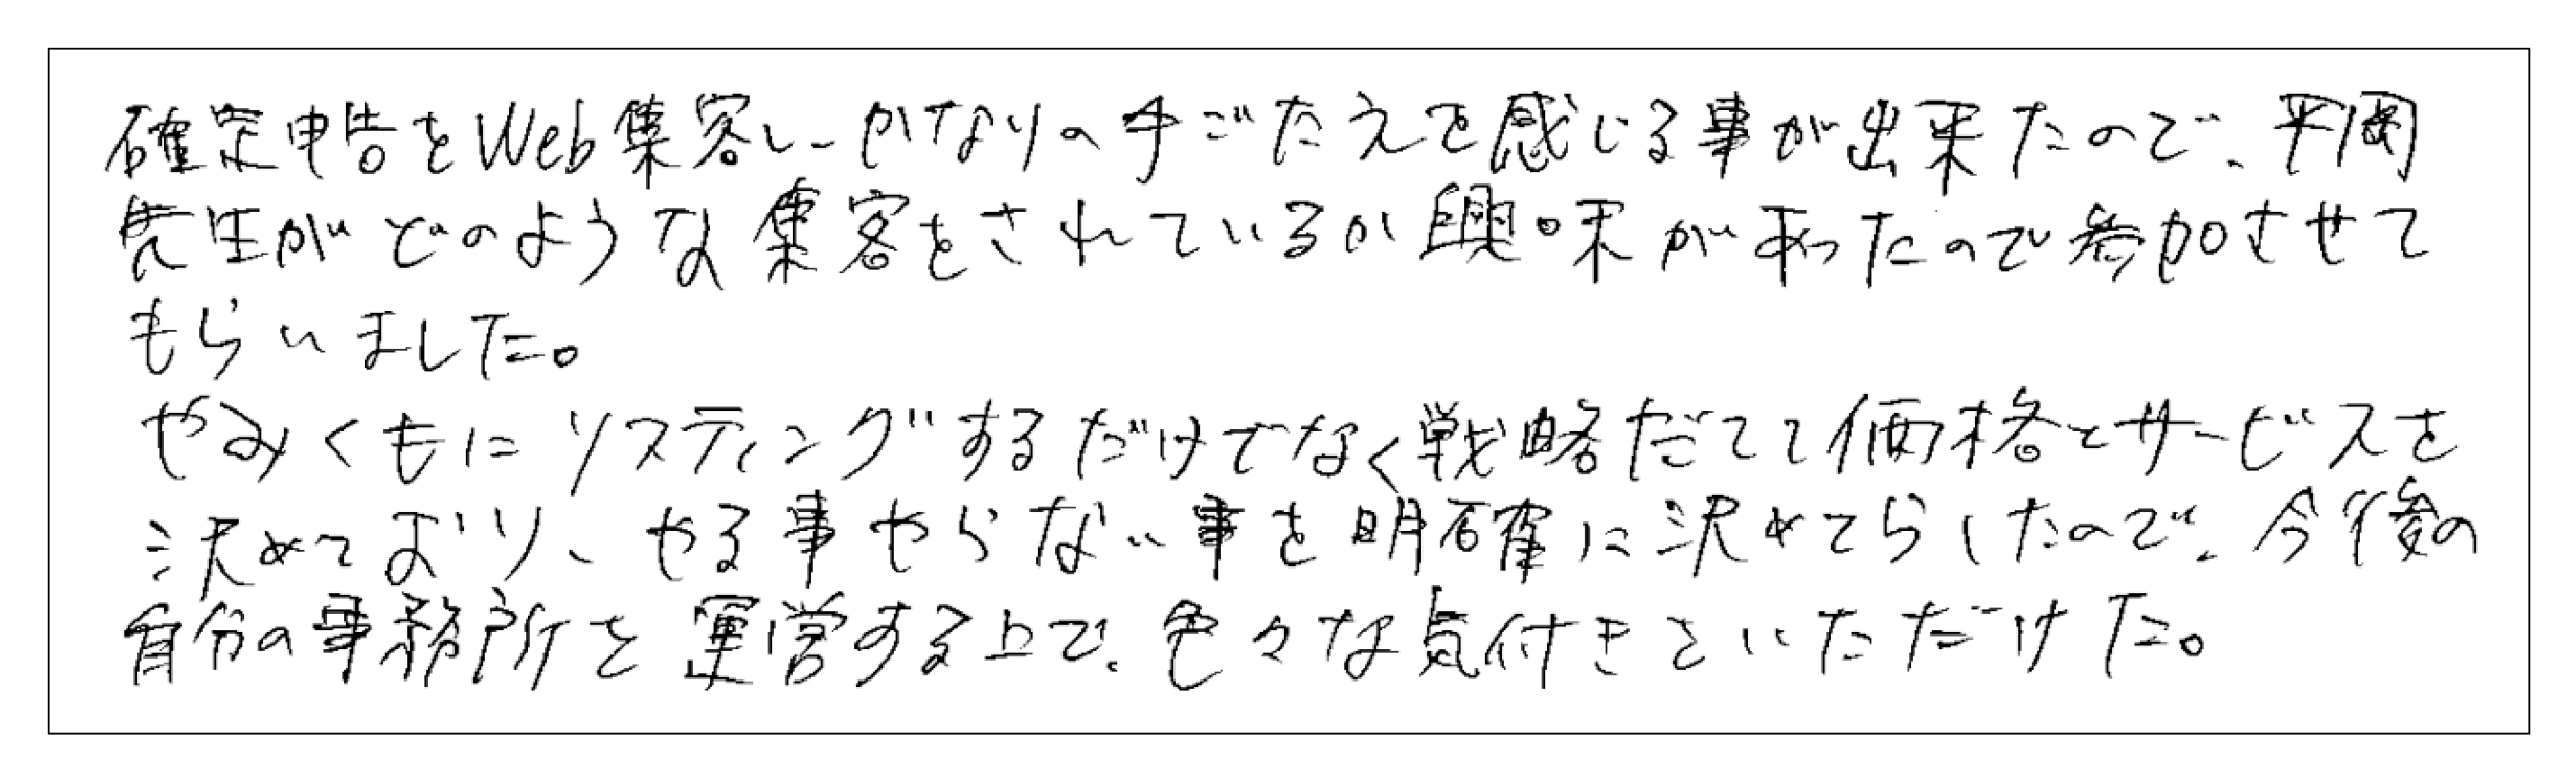 確定申告をWeb集客し、かなりの手ごたえを感じる事が出来たので、平岡
先生がどのような集客をされているか興味があったので参加させて
もらいました。
やみくもにリスティングするだけでなく戦略だてて価格とサービスを
決めており、やる事やらない事を明確に決めてらしたので、今後の
自分の事務所を運営する上で、色々な気付きをいただけた。